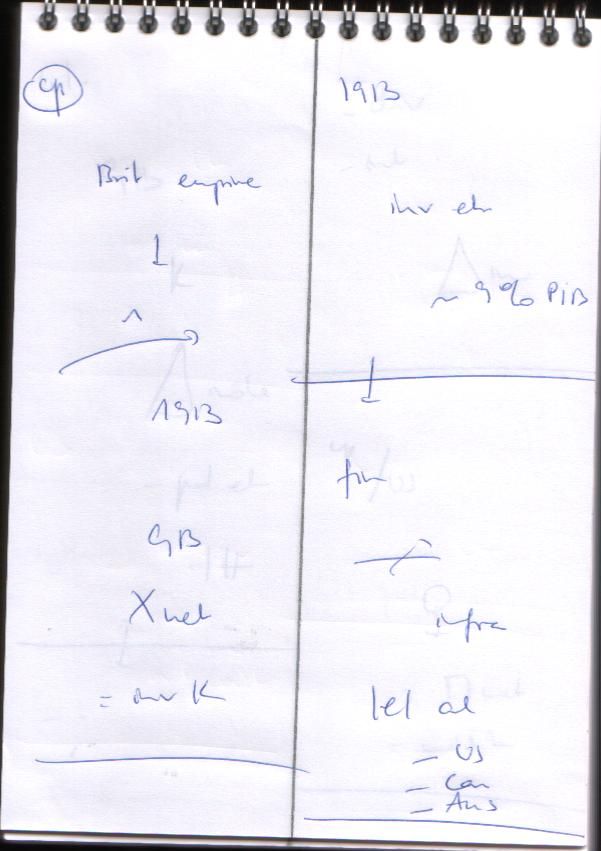 Brit empire
1913
GB
X net
= inv K
1913
inv etr
~ 9% PIB
fin
infra
tel
- US
- Can
- Aus